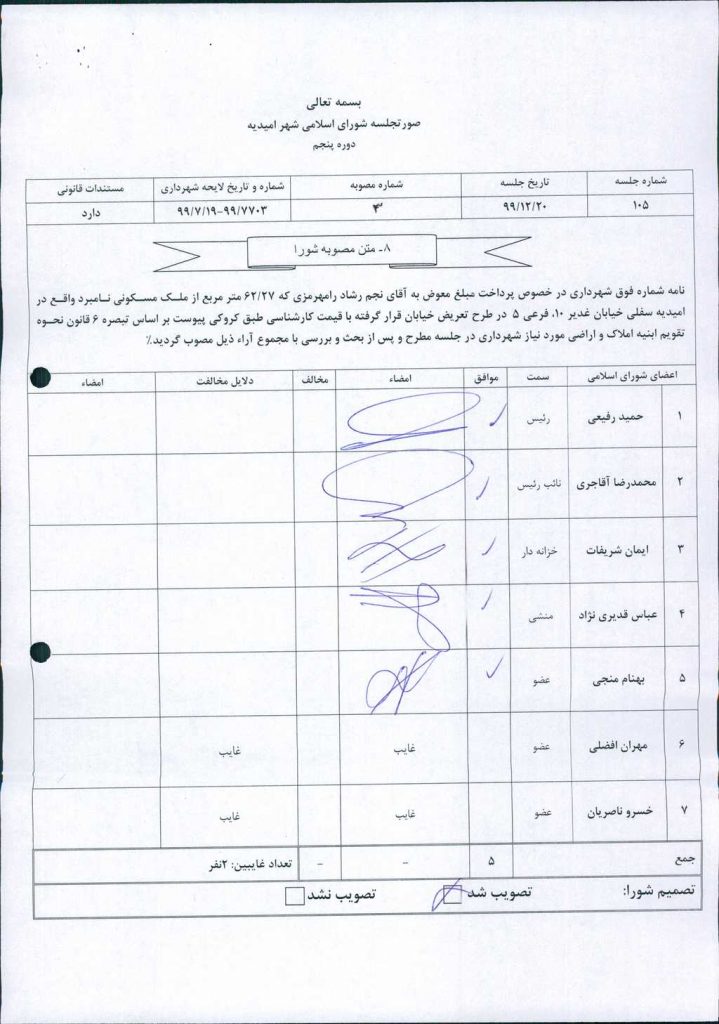 بسمه تعالی
صورتجلسه شورای اسلامی شهر امیدیه
دوره پنجم
شماره جلسه تاریخ جلسه شماره مصوبه شماره و تاریخ لایحه شهرداری مستندات قانونی
۱۰۵ ۹۹/۱۲/۲۰ ۳ ۹۹/۷/۱۹-۹۹/۷۷۰۳ دارد
۸ـ متن مصوبه شورا
نامه شماره فوق شهرداری در خصوص پرداخت مبلغ معوض به آقای نجم رشاد رامهرمزی که ۶۲/۲۷ متر مربع از ملک مسکونی نامبرد واقع در
امیدیه سفلی خیابان غدیر ۱۰، فرعی ۵ در طرح تعریض خیابان قرار گرفته با قیمت کارشناسی طبق کروکی پیوست بر اساس تبصره ۶ قانون نحوه
تقویم ابنیه املاک و اراضی مورد نیاز شهرداری در جلسه مطرح و پس از بحث و بررسی با مجموع آراء ذیل مصوب گردید.٪
اعضای شورای اسلامی سمت موافق امضاء مخالف دلایل مخالفت امضاء
۱ حمید رفیعی رئیس
۲ محمدرضا آقاجری نائب رئیس
۳ ایمان شریفات خزانه دار
۴ عباس قدیری نژاد منشی
۵ بهنام منجی عضو
۶ مهران افضلی عضو غایب غایب
۷ خسرو ناصریان عضو غایب غایب
جمع ۵ - - تعداد غایبین: ۲نفر
تصمیم شورا: تصویب شد تصویب نشد